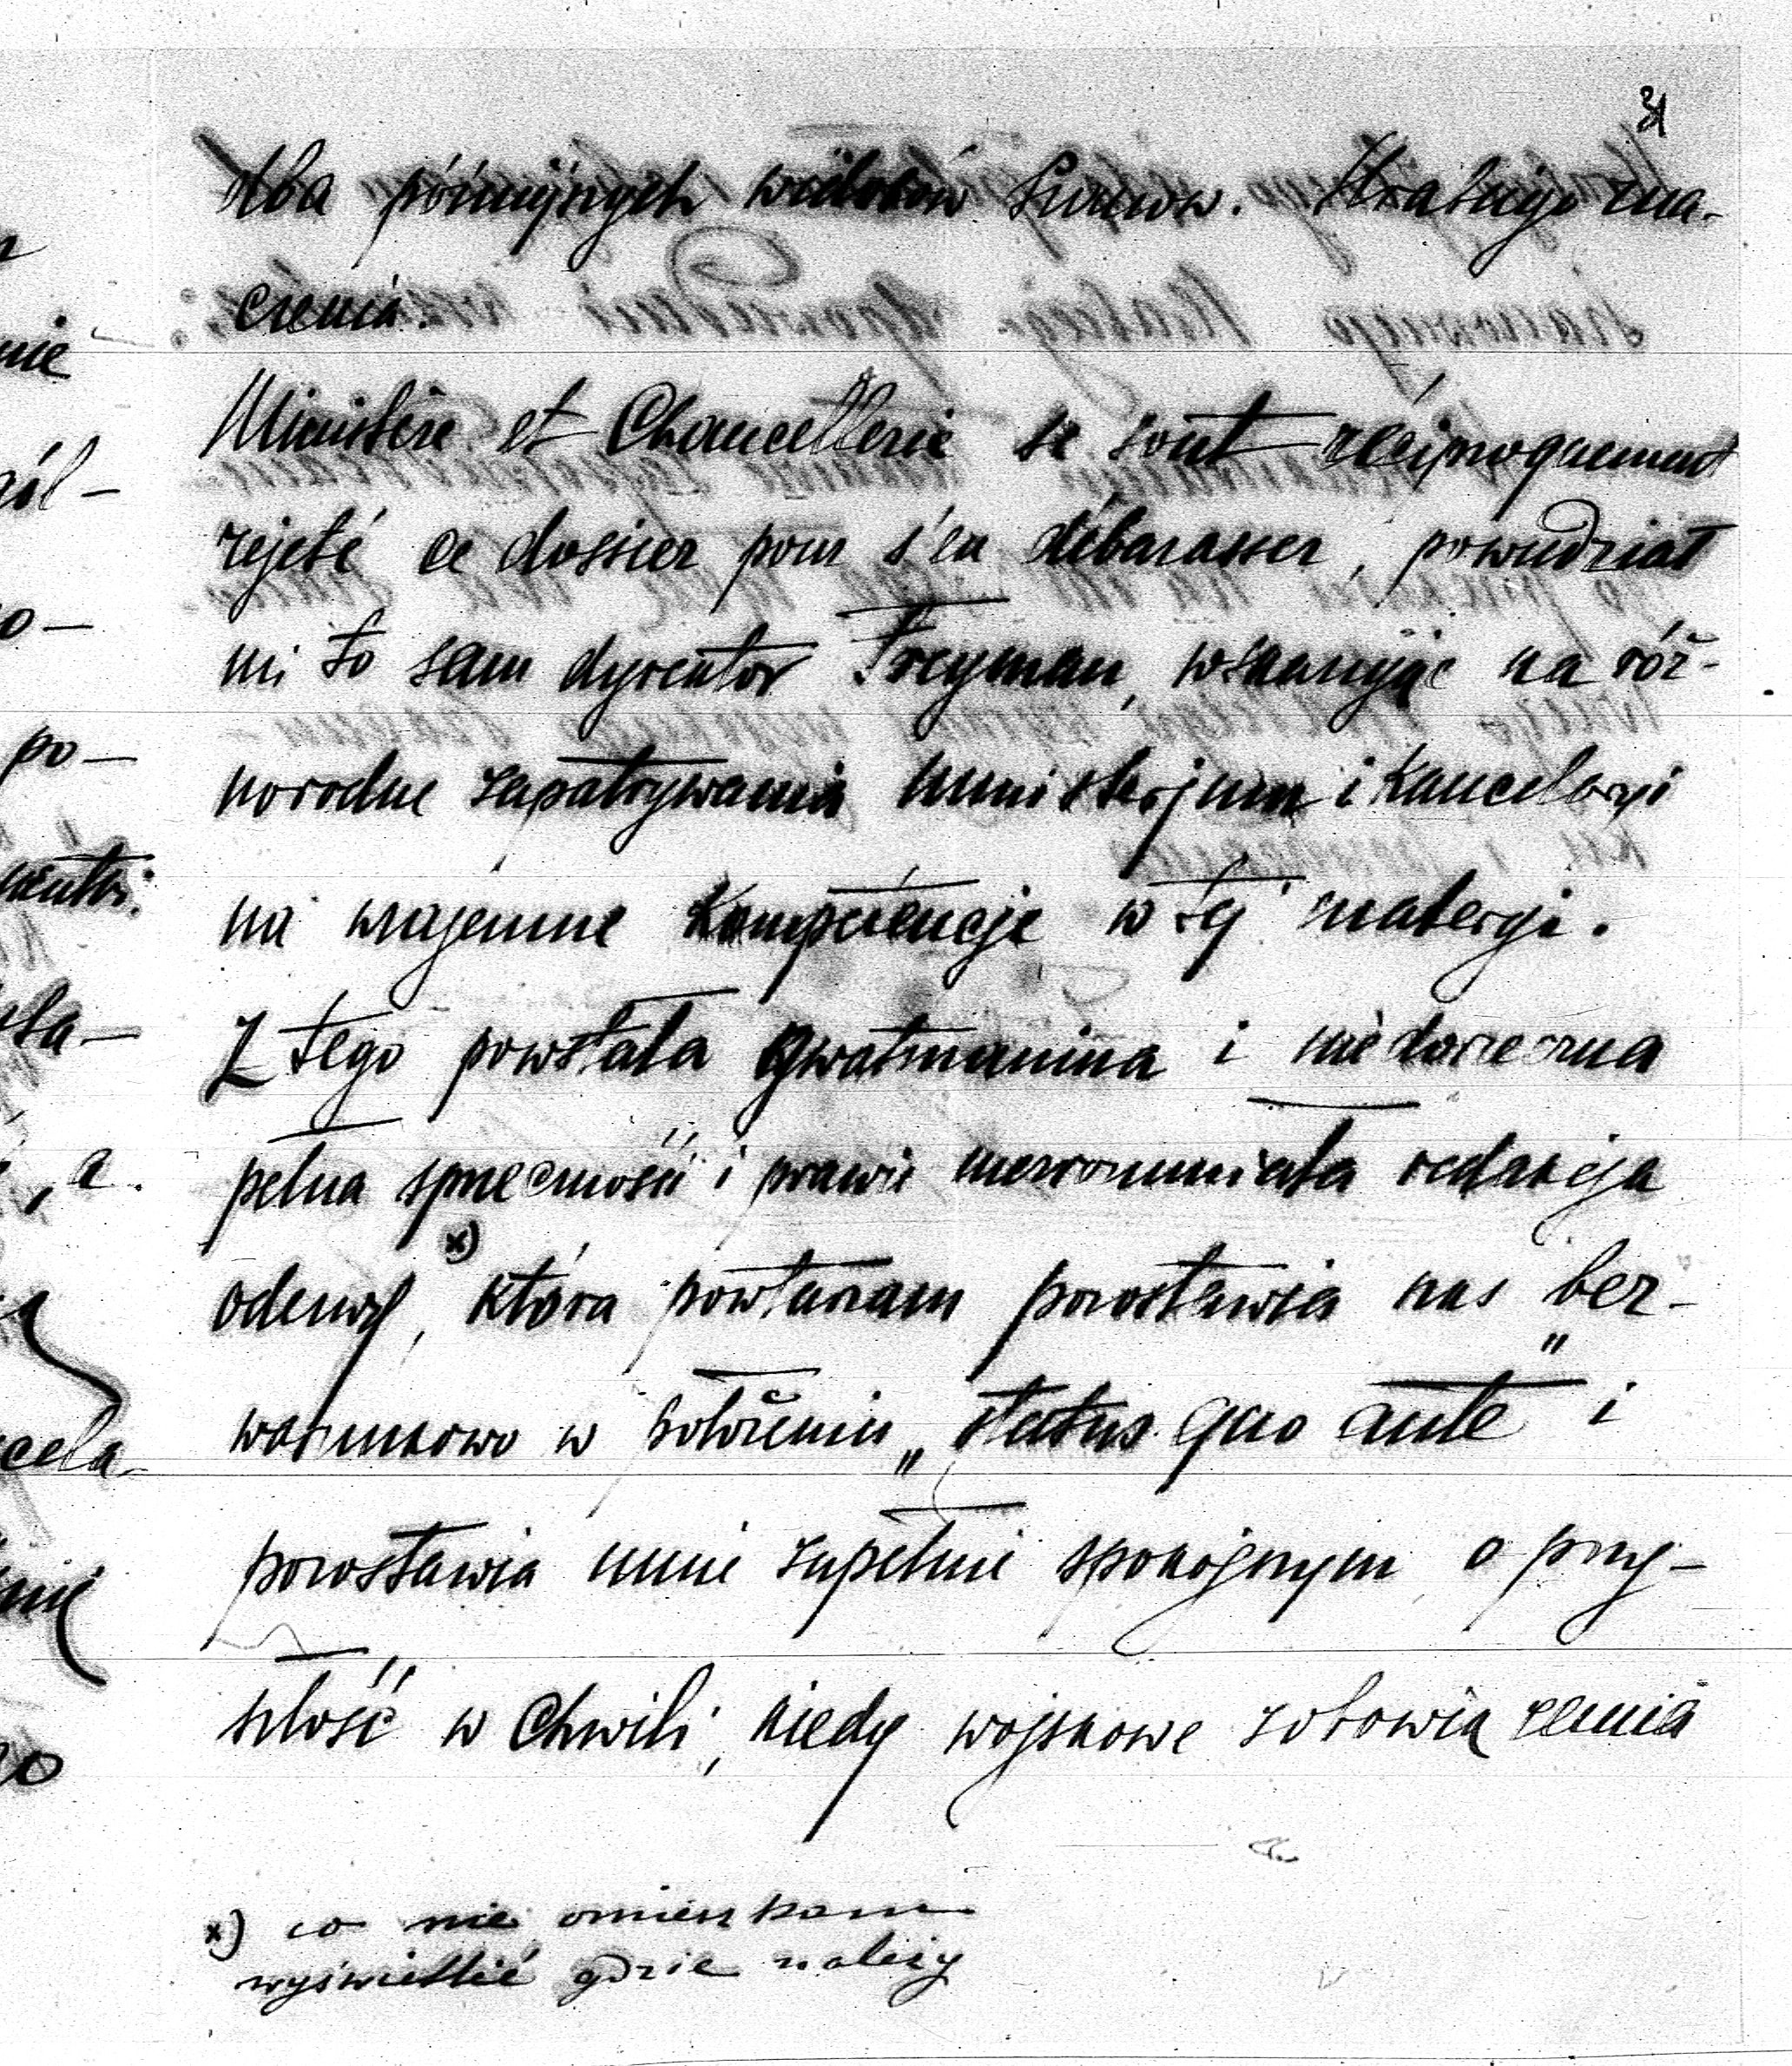 31
dla późniejszych widoków Szanow. Strasznego zna-
czenia.
Ministère et Chancellerie se sont réciproquement
rejeté ce dossier pour s'en débarasser, powiedział
mi to sam dyrektor Freyman, wskazując na róż-
norodne zapatrywania ministerjum i kancelaryi
na wzajemne kompetencje w tej materyi.
Z tego powstała gwatmanina i niedorzeczna
pełna sprzeczności i prawie niezrozumiała redakcja
odezwy x), która powtarzam pozostawia nas "bez-
warunkowo w położeniu „status quo ante" i
pozostawia mnie zupełnie spokojnym o przy-
szłość w chwili, kiedy wojskowe zobowiązania
x) co nie omieszkam
wyświetlić gdzie należy
nie
ól-
o-
po-
, a.
cela-